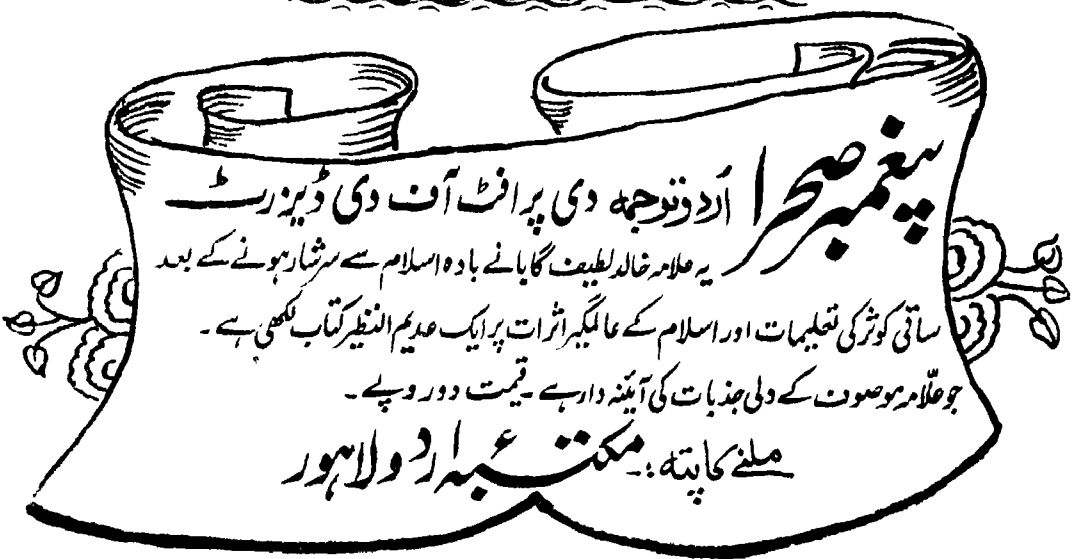 پیغمبر صحرا اردو ترجمہ دی پرافٹ آف دی ڈیزرٹ
یہ علامہ خالد لطیف گابا نے بادہ اسلام سے سرشار ہونے کے بعد
ساقی کوثر کی تعلیمات اور اسلام کے عالمگیر اثرات پر ایک عدیم النظیر کتاب لکھی ہے ۔
جو علّامہ موصوف کے دلی جذبات کی آئینہ دار ہے ۔ قیمت دو روپے ۔
ملنے کا پتہ :۔ مکتبۂ اردو لاہور